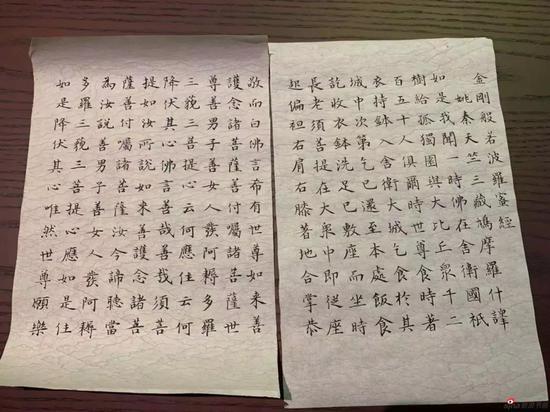 金剛般若波羅蜜經
姚秦天竺三藏鳩摩羅什譯
如是我聞一時佛在舍衛國祇
樹給孤獨園與大比丘衆千二
百五十人俱爾時世尊食時著
衣持鉢入舍衛大城乞食於其
城中次第乞已還至本處飯食
訖收衣鉢洗足已敷座而坐時
長老須菩提在大衆中即從座
起偏袒右肩右膝著地合掌恭
敬而白佛言希有世尊如來善
護念諸菩薩善付囑諸菩薩世
尊善男子善女人發阿耨多羅
三藐三菩提心云何應住云何
降伏其心佛言善哉善哉須菩
提如汝所說如來善護念諸菩
薩善付囑諸菩薩汝今諦聽當
為汝說善男子善女人發阿耨
多羅三藐三菩提心應如是住
如是降伏其心唯然世尊願樂